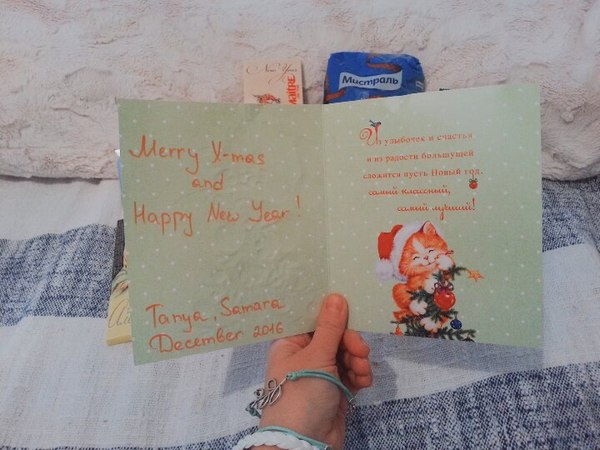 New Year
MAÎTRE
Мистраль
Merry X-mas
and
Happy New Year!
Tanya, Samara
December 2016
Из улыбочек и счастья
и из радости большущей
сложится пусть Новый год,
самый классный,
самый лучший!